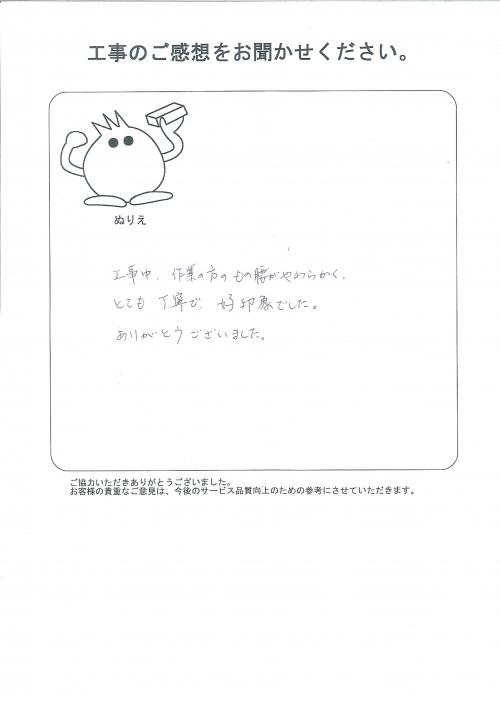 工事のご感想をお聞かせください。
ぬりえ
工事中、作業の方のもの腰がやわらかく、
とても丁寧で、好印象でした。
ありがとうございました。
ご協力いただきありがとうございました。
お客様の貴重なご意見は、今後のサービス品質向上のための参考にさせていただきます。